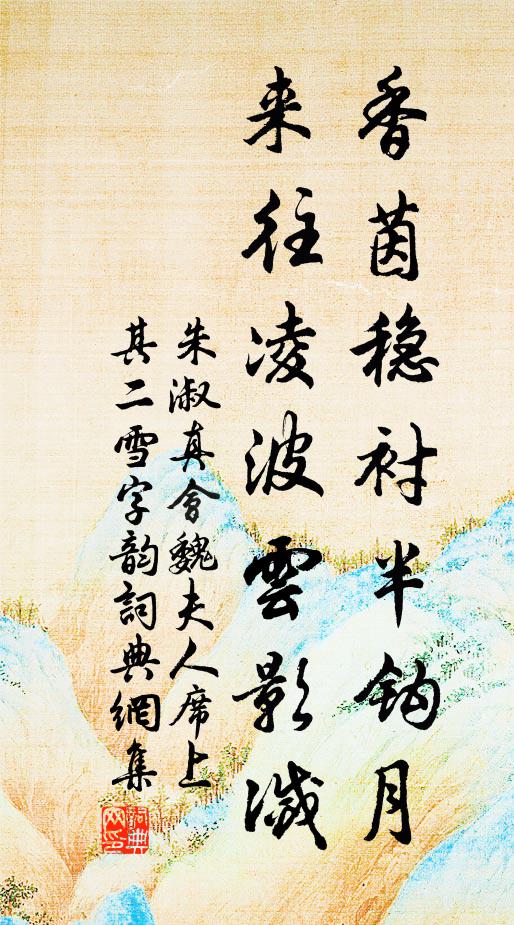 香茵穏衬半鈎月
来往凌波雲影滅
朱淑真會魏夫人席上
其二雪字韵詞典網集
詞典
网印